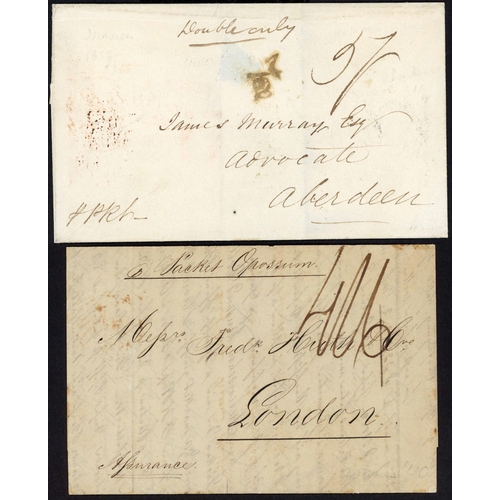 Double only
1/2
5/
James Murray Esq
Advocate
Aberdeen
p Packet Opossum
Messrs Fredk Huth & Co
London
Assurance